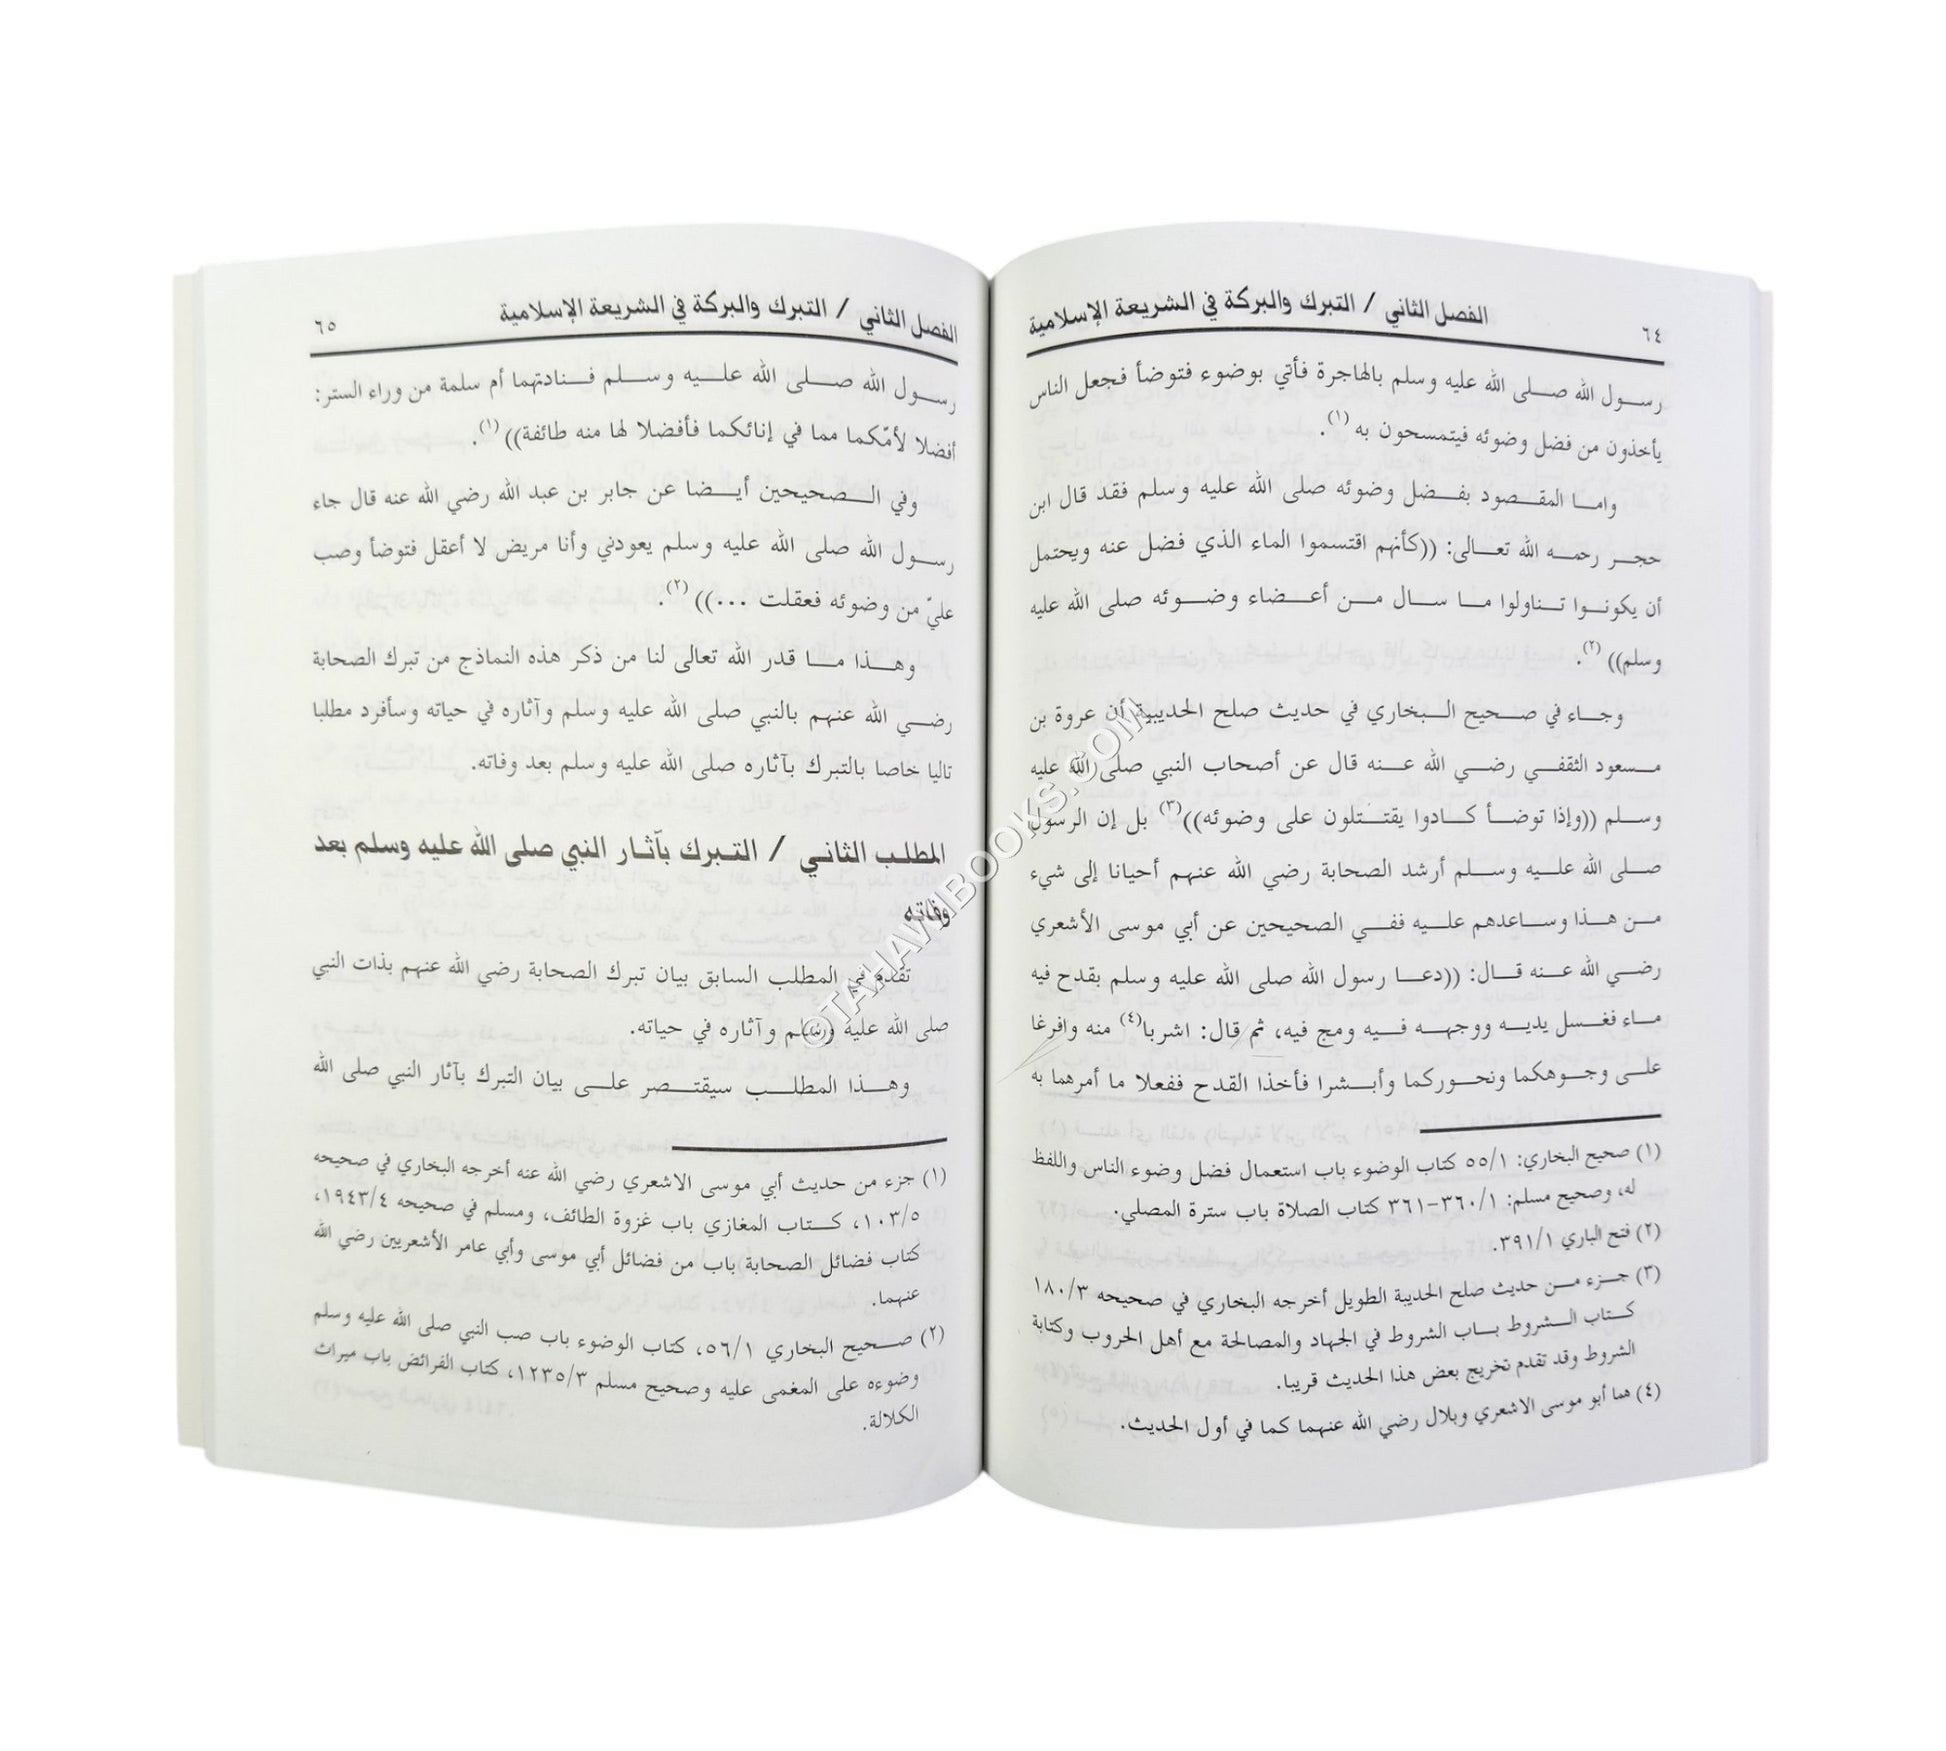 الفصل الثاني / التبرك والبركة في الشريعة الإسلامية
٦٤
رسول الله صلى الله عليه وسلم بالهاجرة فأتي بوضوء فتوضأ فجعل الناس
يأخذون من فضل وضوئه فيتمسحون به (١).
واما المقصود بفضل وضوئه صلى الله عليه وسلم فقد قال ابن
حجر رحمه الله تعالى: ((كأنهم اقتسموا الماء الذي فضل عنه ويحتمل
أن يكونوا تناولوا ما سال من أعضاء وضوئه صلى الله عليه
وسلم)) (٢).
وجاء في صحيح البخاري في حديث صلح الحديبية أن عروة بن
مسعود الثقفي رضي الله عنه قال عن أصحاب النبي صلى الله عليه
وسلم ((وإذا توضأ كادوا يقتتلون على وضوئه))(٣) بل إن الرسول
صلى الله عليه وسلم أرشد الصحابة رضي الله عنهم أحيانا إلى شيء
من هذا وساعدهم عليه ففي الصحيحين عن أبي موسى الأشعري
رضي الله عنه قال: ((دعا رسول الله صلى الله عليه وسلم بقدح فيه
ماء فغسل يديه ووجهه فيه ومج فيه، ثم قال: اشربا(٤) منه وافرغا
على وجوهكما ونحوركما وأبشرا فأخذا القدح ففعلا ما أمرهما به
(١) صحيح البخاري: ٥٥/١ كتاب الوضوء باب استعمال فضل وضوء الناس واللفظ
له، وصحيح مسلم: ٣٦٠/١-٣٦١ كتاب الصلاة باب سترة المصلي.
(٢) فتح الباري ٣٩١/١.
(٣) جزء من حديث صلح الحديبة الطويل أخرجه البخاري في صحيحه ١٨٠/٣
كتاب الشروط باب الشروط في الجهاد والمصالحة مع أهل الحروب وكتابة
الشروط وقد تقدم تخريج بعض هذا الحديث قريبا.
(٤) هما أبو موسى الاشعري وبلال رضي الله عنهما كما في أول الحديث.
الفصل الثاني / التبرك والبركة في الشريعة الإسلامية
٦٥
رسول الله صلى الله عليه وسلم فنادتهما أم سلمة من وراء الستر:
أفضلا لأمّكما مما في إنائكما فأفضلا لها منه طائفة)) (١).
وفي الصحيحين أيضا عن جابر بن عبد الله رضي الله عنه قال جاء
رسول الله صلى الله عليه وسلم يعودني وأنا مريض لا أعقل فتوضأ وصب
عليّ من وضوئه فعقلت ...)) (٢).
وهذا ما قدر الله تعالى لنا من ذكر هذه النماذج من تبرك الصحابة
رضي الله عنهم بالنبي صلى الله عليه وسلم وآثاره في حياته وسأفرد مطلبا
تاليا خاصا بالتبرك بآثاره صلى الله عليه وسلم بعد وفاته.
المطلب الثاني / التبرك بآثار النبي صلى الله عليه وسلم بعد
وفاته
تقدم في المطلب السابق بيان تبرك الصحابة رضي الله عنهم بذات النبي
صلى الله عليه وسلم وآثاره في حياته.
وهذا المطلب سيقتصر على بيان التبرك بآثار النبي صلى الله
(١) جزء من حديث أبي موسى الاشعري رضي الله عنه أخرجه البخاري في صحيحه
١٠٣/٥، كتاب المغازي باب غزوة الطائف، ومسلم في صحيحه ١٩٤٣/٤،
كتاب فضائل الصحابة باب من فضائل أبي موسى وأبي عامر الأشعريين رضي الله
عنهما.
(٢) صحيح البخاري ٥٦/١، كتاب الوضوء باب صب النبي صلى الله عليه وسلم
وضوءه على المغمى عليه وصحيح مسلم ١٢٣٥/٣، كتاب الفرائض باب ميراث
الكلالة.
©TAHAWIBOOKS.COM